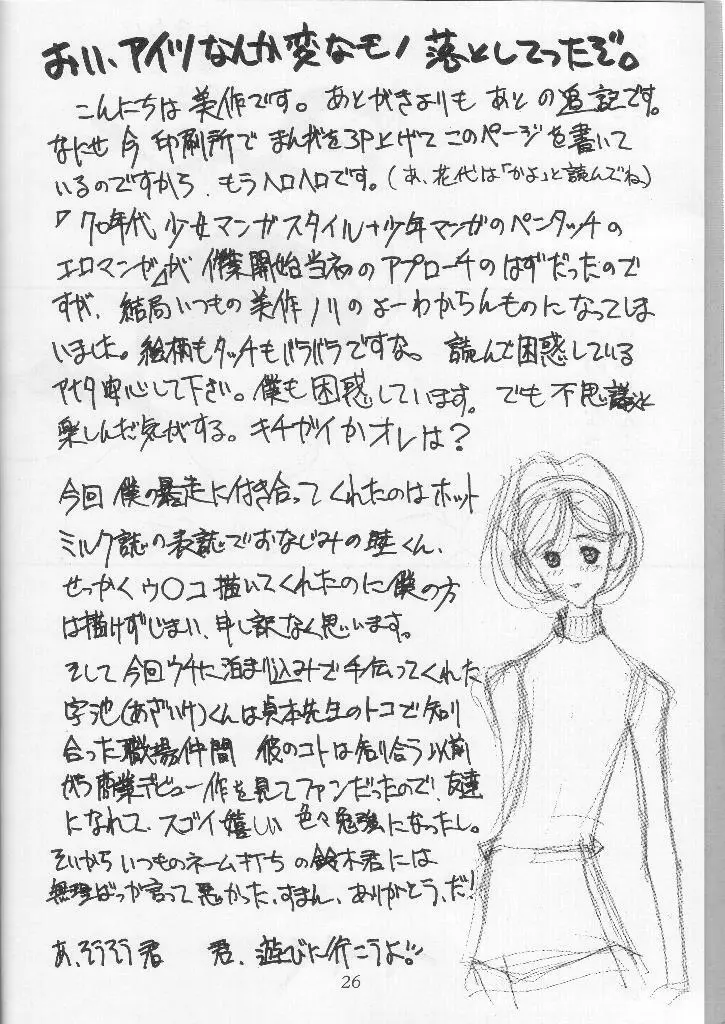 おい、アイツなんか変なモノ落としてったぞ。
こんにちは美作です。あとがきよりもあとの追記です。
なにせ今印刷所でまんがを3P上げてこのページを書いて
いるのですから、もうヘロヘロです。(あ、花代は「かよ」と読んでね)
『70年代少女マンガスタイル+少年マンガのペンタッチの
エロマンガ』が作業開始当初のアプローチのはずだったので
すが、結局いつもの美作ノリのよーわからんものになってしま
いました。絵柄もタッチもバラバラですな。読んで困惑している
アナタ安心して下さい。僕も困惑しています。でも不思議と
楽しんだ気がする。キチガイかオレは?
今回僕の暴走に付き合ってくれたのはホット
ミルク誌の表誌でおなじみの睦くん、
せっかくウ〇コ描いてくれたのに僕の方
は描けずじまい、申し訳なく思います。
そして今回ウチに泊まり込みで手伝ってくれた
字池(あざいけ)くんは貞本先生のトコで知り
合った職場仲間 彼のコトは知り合う以前
から商業デビュー作を見てファンだったので、友達
になれて、スゴイ嬉しい 色々勉強になったし。
それからいつものネーム打ちの鈴木君には
無理ばっか言って悪かった、すまん、ありがとう、だ!
あ、そうそう君 君、遊びに行こうよ!!
26